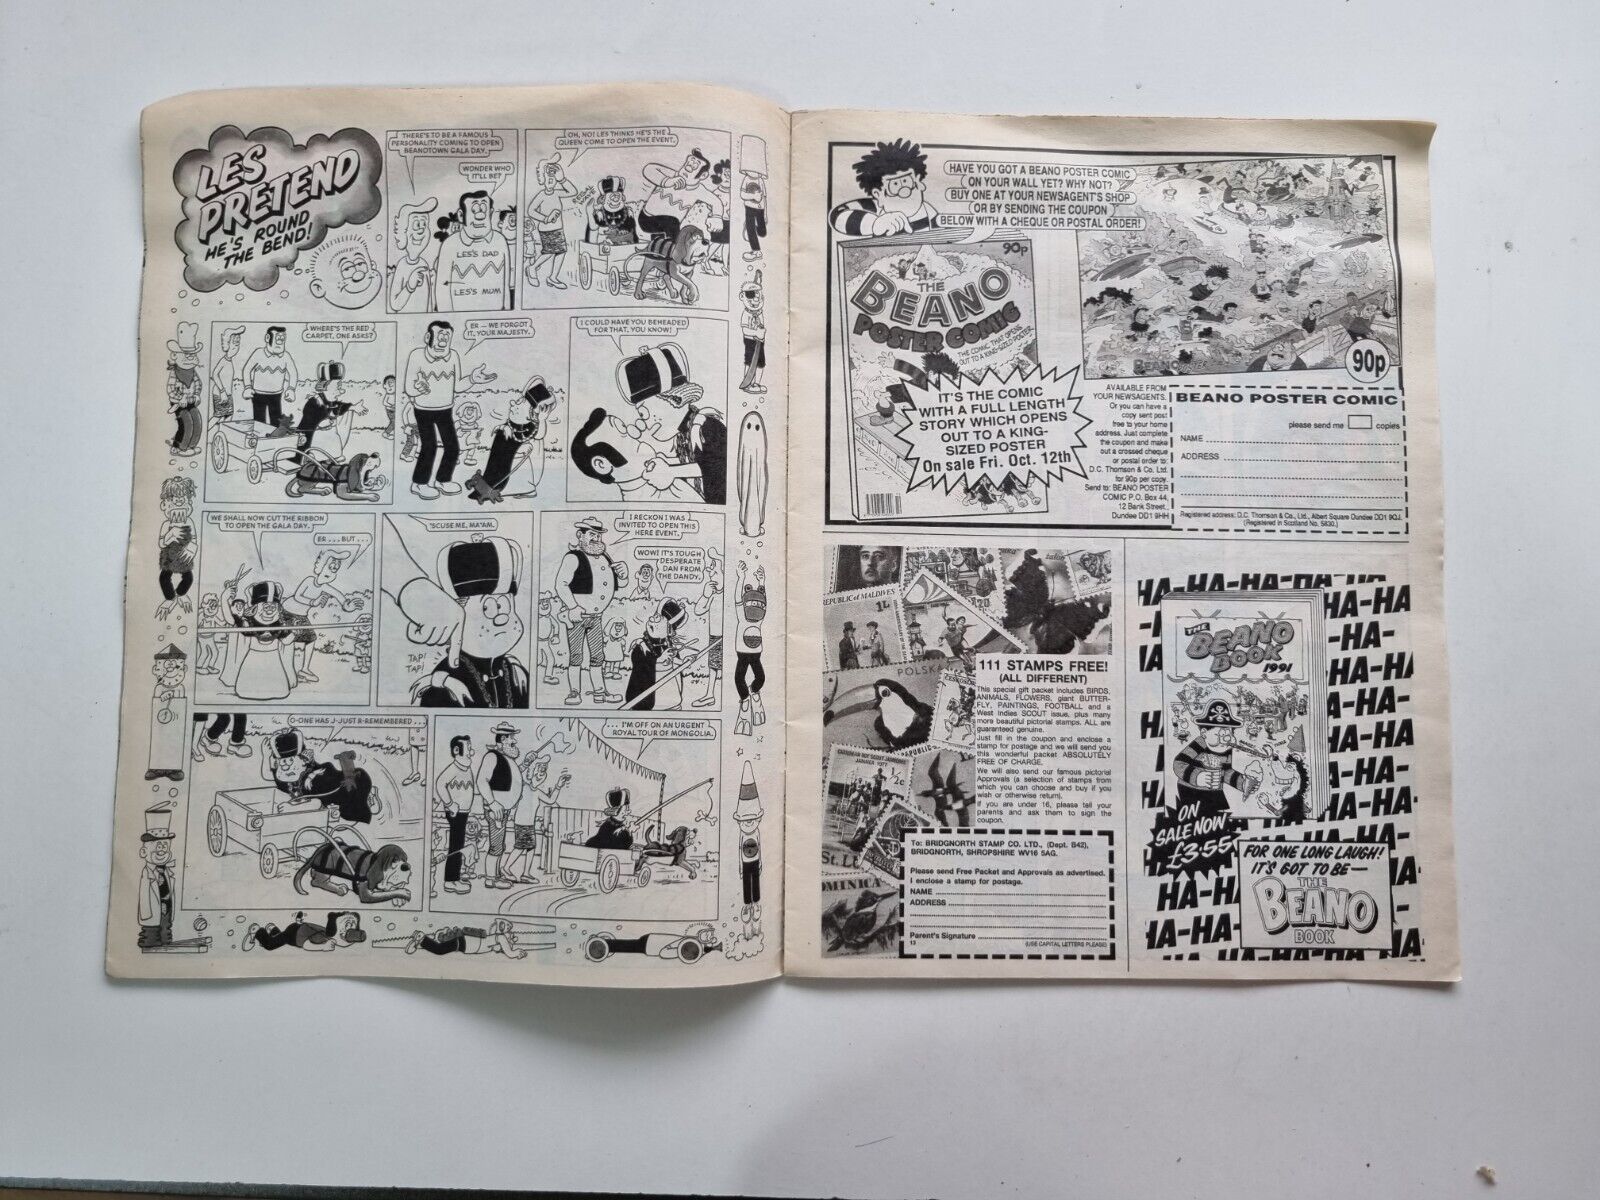 LES
PRETEND
HE'S ROUND
THE BEND!
THERE'S TO BE A FAMOUS
PERSONALITY COMING TO OPEN
BEANOTOWN GALA DAY.
WONDER WHO
IT'LL BE?
LES'S DAD
LES'S MUM
OH, NO! LES THINKS HE'S THE
QUEEN COME TO OPEN THE EVENT.
WHERE'S THE RED
CARPET, ONE ASKS?
ER — WE FORGOT
IT, YOUR MAJESTY.
I COULD HAVE YOU BEHEADED
FOR THAT, YOU KNOW!
WE SHALL NOW CUT THE RIBBON
TO OPEN THE GALA DAY.
ER...BUT...
'SCUSE ME, MA'AM.
TAP!
TAP!
I RECKON I WAS
INVITED TO OPEN THIS
HERE EVENT.
WOW! IT'S TOUGH
DESPERATE
DAN FROM
THE DANDY.
O-ONE HAS J-JUST R-REMEMBERED...
...I'M OFF ON AN URGENT
ROYAL TOUR OF MONGOLIA.
HAVE YOU GOT A BEANO POSTER COMIC
ON YOUR WALL YET? WHY NOT?
BUY ONE AT YOUR NEWSAGENT'S SHOP
OR BY SENDING THE COUPON
BELOW WITH A CHEQUE OR POSTAL ORDER!
90p
THE
BEANO
POSTER COMIC
THE COMIC THAT OPENS
OUT TO A KING-SIZED POSTER
IT'S THE COMIC
WITH A FULL LENGTH
STORY WHICH OPENS
OUT TO A KING-
SIZED POSTER
On sale Fri. Oct. 12th
90p
AVAILABLE FROM
YOUR NEWSAGENTS.
Or you can have a
copy sent post
free to your home
address. Just complete
the coupon and make
out a crossed cheque
or postal order to:
D.C. Thomson & Co. Ltd.
for 90p per copy.
Send to: BEANO POSTER
COMIC P.O. Box 44,
12 Bank Street,
Dundee DD1 9HH
BEANO POSTER COMIC
please send me copies
NAME
ADDRESS
Registered address: D.C. Thomson & Co., Ltd., Albert Square Dundee DD1 9QJ.
(Registered in Scotland No. 5830.)
REPUBLIC OF MALDIVES
1L
POLSKA
111 STAMPS FREE!
(ALL DIFFERENT)
This special gift packet includes BIRDS,
ANIMALS, FLOWERS, giant BUTTER-
FLY, PAINTINGS, FOOTBALL and a
West Indies SCOUT issue, plus many
more beautiful pictorial stamps. ALL are
guaranteed genuine.
Just fill in the coupon and enclose a
stamp for postage and we will send you
this wonderful packet ABSOLUTELY
FREE OF CHARGE.
We will also send our famous pictorial
Approvals (a selection of stamps from
which you can choose and buy if you
wish or otherwise return).
If you are under 16, please tell your
parents and ask them to sign the
coupon.
JAMAICA 1977
St. Lu
DOMINICA
To: BRIDGNORTH STAMP CO. LTD., (Dept. B42),
BRIDGNORTH, SHROPSHIRE WV16 5AG.
Please send Free Packet and Approvals as advertised.
I enclose a stamp for postage.
NAME
ADDRESS
Parent's Signature
13 (USE CAPITAL LETTERS PLEASE)
HA-HA-HA-HA-HA-HA
THE
BEANO
BOOK
1991
ON
SALE NOW
£3·55
FOR ONE LONG LAUGH!
IT'S GOT TO BE—
THE
BEANO
BOOK